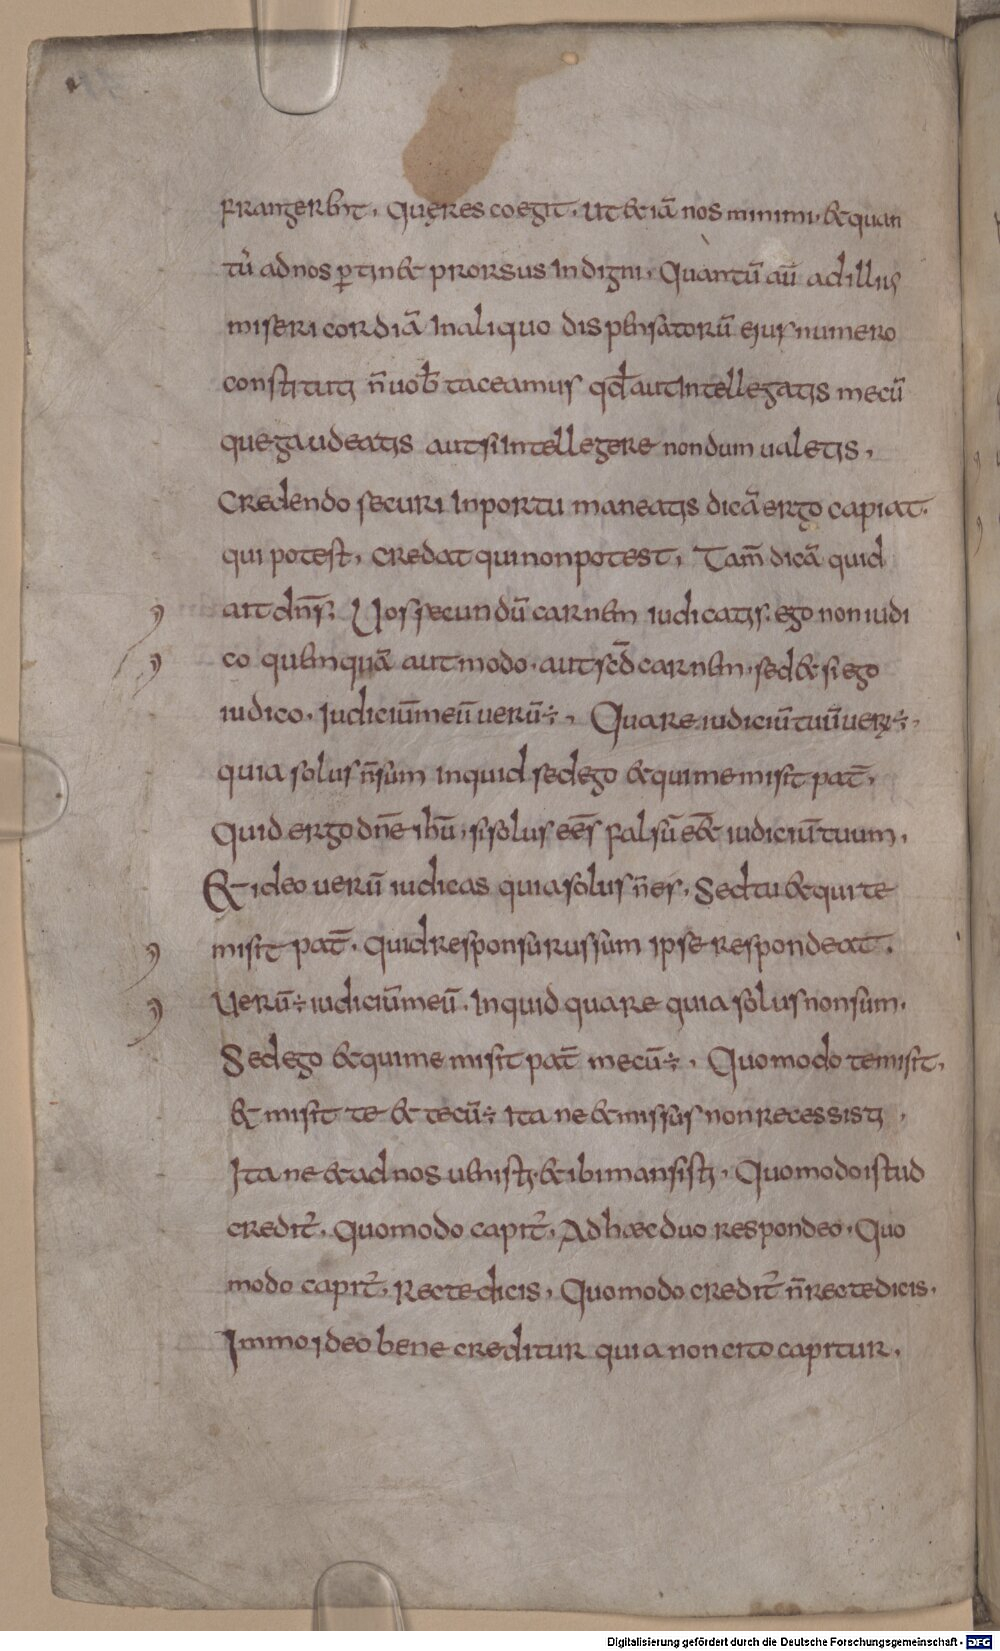 frangerent, Quęres coegit, ut & iā nos minimi, & quan
tū ad nos ꝑtin& prorsus indigni, Quantū aū ad illius
misericordiā in aliquo dispensatorū eius numero
constituti n̄ uob̄ taceamus qđ aut intellegatis mecū
que gaudeatis aut si intellegere nondum ualetis,
Credendo securi in portu maneatis dicā ergo capiat
qui potest, credat qui non potest, Tam̄ dicā quid
ait dn̄s, Uos secundū carnem iudicatis, ego non iudi
co quemquā aut modo, aut scd̄ carnem, sed & si ego
iudico, iudiciū meū uerū ÷, Quare iudiciū tuū uerū ÷,
quia solus n̄ sum inquid sed ego & qui me misit pat̄,
Quid ergo dn̄e ihū, si solus ees̄ falsū ee& iudiciū tuum,
Et ideo uerū iudicas quia solus n̄ es, Sed tu & qui te
misit pat̄, quid responsurus sum ipse respondeat,
Uerū ÷ iudiciū meū, Inquid quare quia solus non sum,
Sed ego & qui me misit pat̄ mecū ÷, Quomodo te misit,
& misit te & tecū ÷ ita ne & missus non recessisti,
Ita ne & ad nos uenisti, & ibi mansisti, Quomodo istud
credit᷑, Quomodo capit᷑, Ad hæc duo respondeo, Quo
modo capit᷑, Recte dicis, Quomodo credit᷑ n̄ recte dicis,
Immo ideo bene creditur quia non cito capitur,
Digitalisierung gefördert durch die Deutsche Forschungsgemeinschaft - DFG